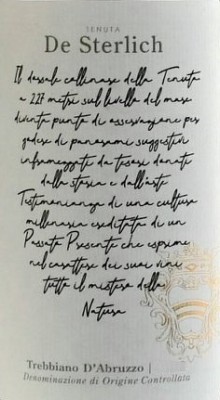 TENUTA
De Sterlich
Il dorsale collinare della Tenuta
a 227 metri sul livello del mare
diventa punto di osservazione per
godere di panorami suggestivi
inframezzati da tesori donati
dalla storia e dall'arte
Testimonianza di una cultura
millenaria ereditata di un
Passato Presente che esprime
nel carattere dei suoi vini
tutto il mistero della
Natura
Trebbiano D'Abruzzo |
Denominazione di Origine Controllata